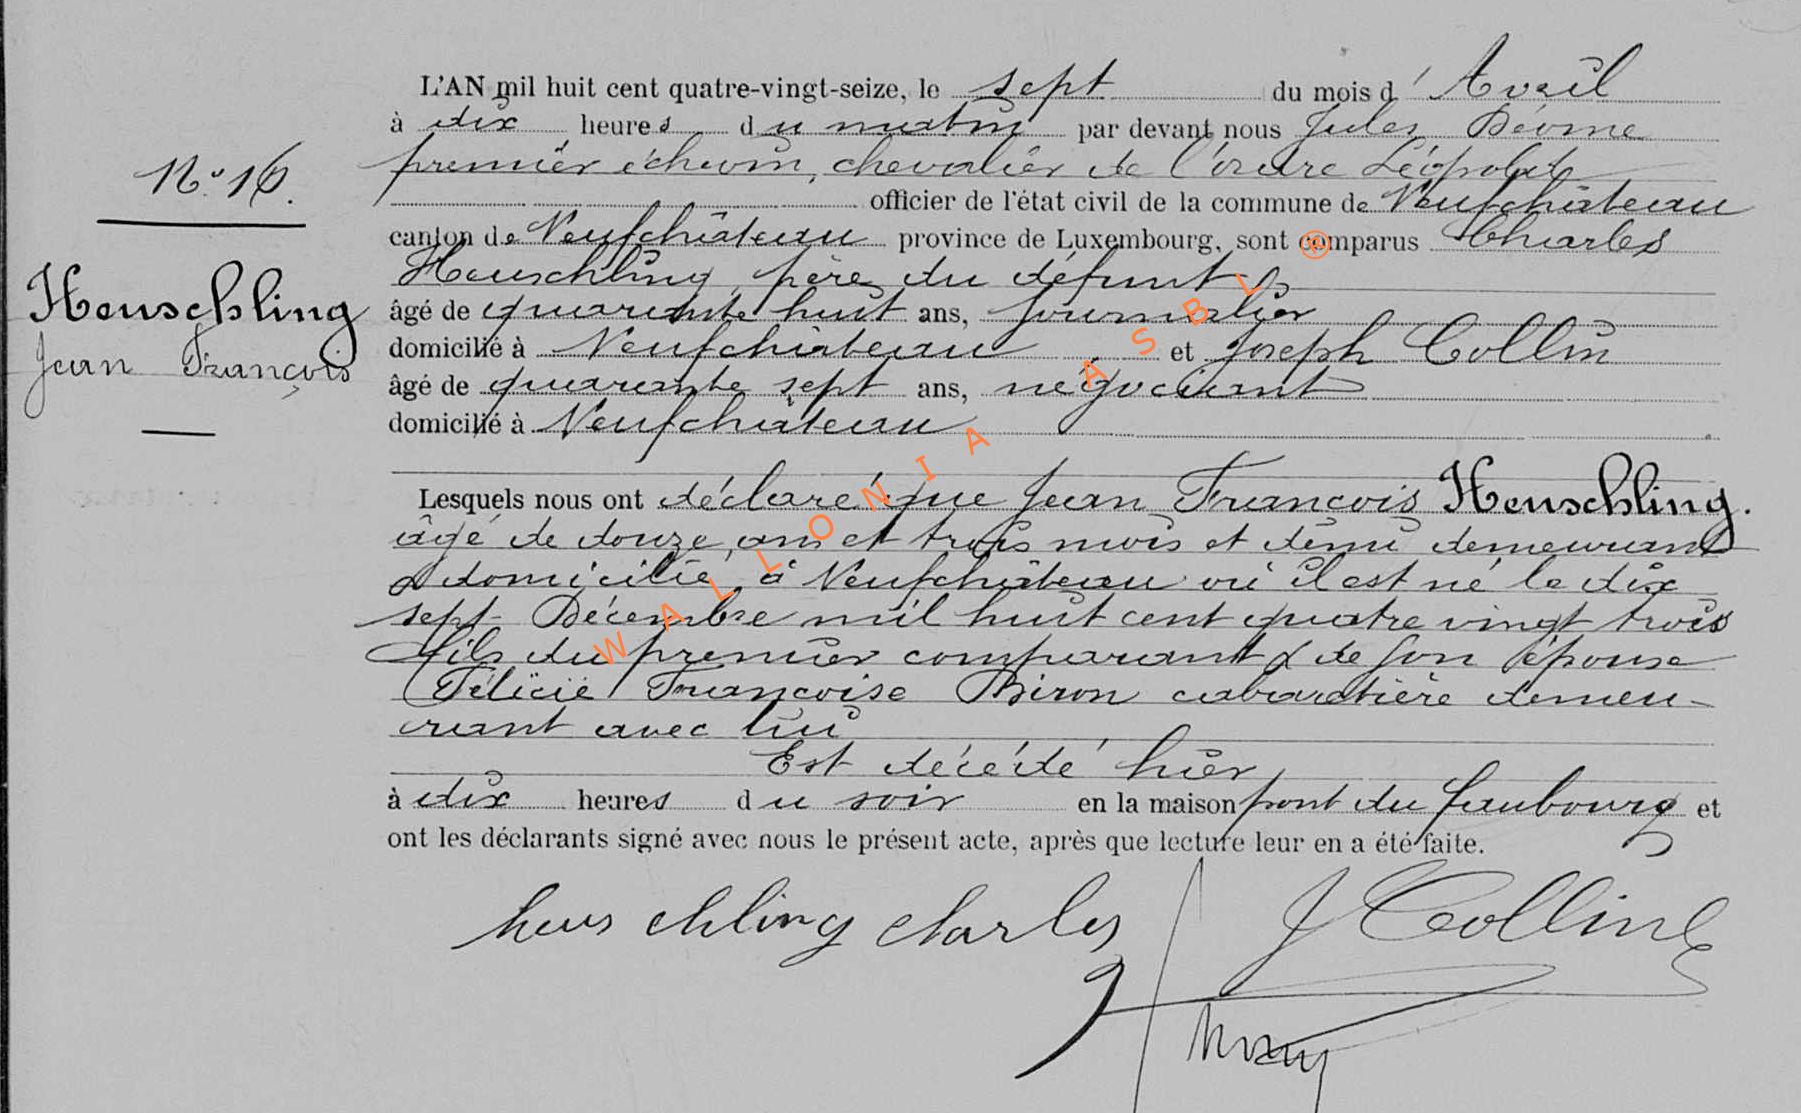 L'AN mil huit cent quatre-vingt-seize, le sept du mois d'Avril
à dix heures du matin par devant nous Jules
premier échevin, chevalier de l'ordre Léopold
officier de l'état civil de la commune de Neufchâteau
N° 16.
canton de Neufchâteau province de Luxembourg, sont comparus Charles
Heuschling père du défunt
Heuschling
âgé de quarante huit ans, journalier
Jean François
domicilié à Neufchâteau et Joseph Collin
âgé de quarante sept ans, négociant
domicilié à Neufchâteau
Lesquels nous ont déclaré que Jean François Heuschling.
âgé de douze ans et trois mois et demi demeurant
& domicilié à Neufchâteau où il est né le dix
sept Décembre mil huit cent quatre vingt trois
fils du premier comparant & de son épouse
Félicie Françoise Biron cabaretière demeu-
rant avec lui
Est décédé hier
à dix heures du soir en la maison pont du faubourg et
ont les déclarants signé avec nous le présent acte, après que lecture leur en a été faite.
heuschling charles J Collin
WALLONIA ASBL ®